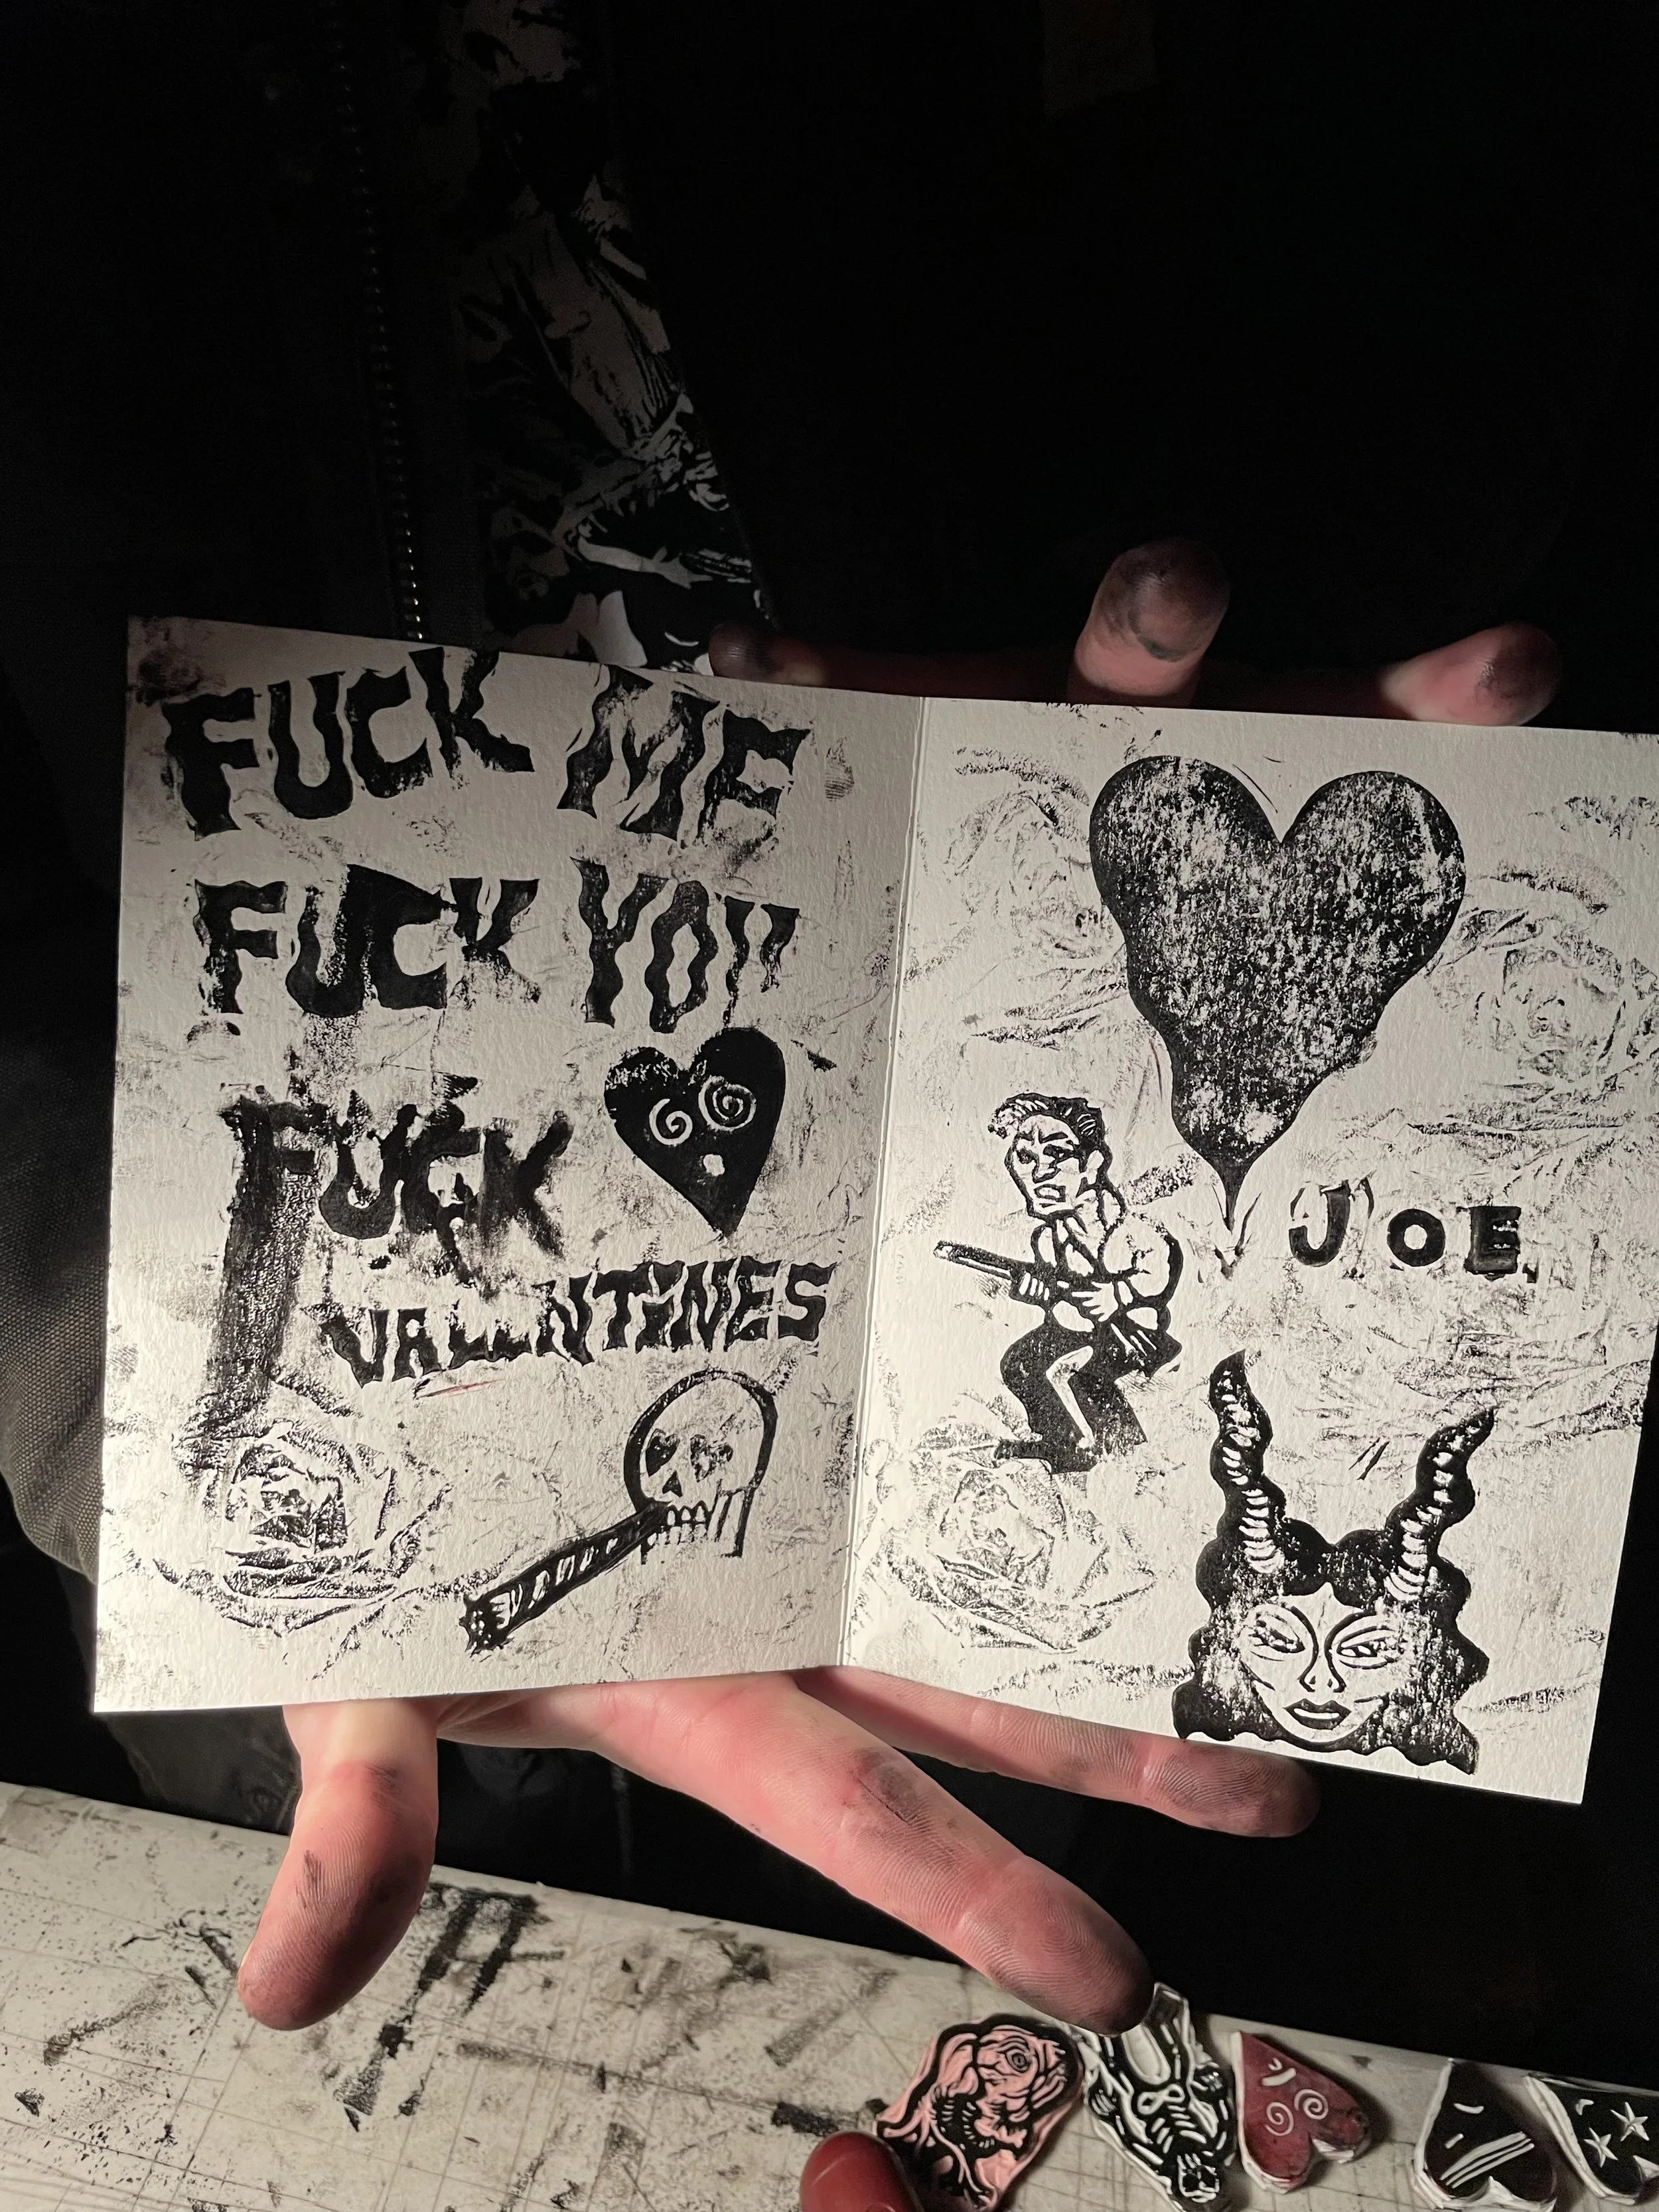 FUCK ME
FUCK YOU
FUCK
VALENTINES
JOE